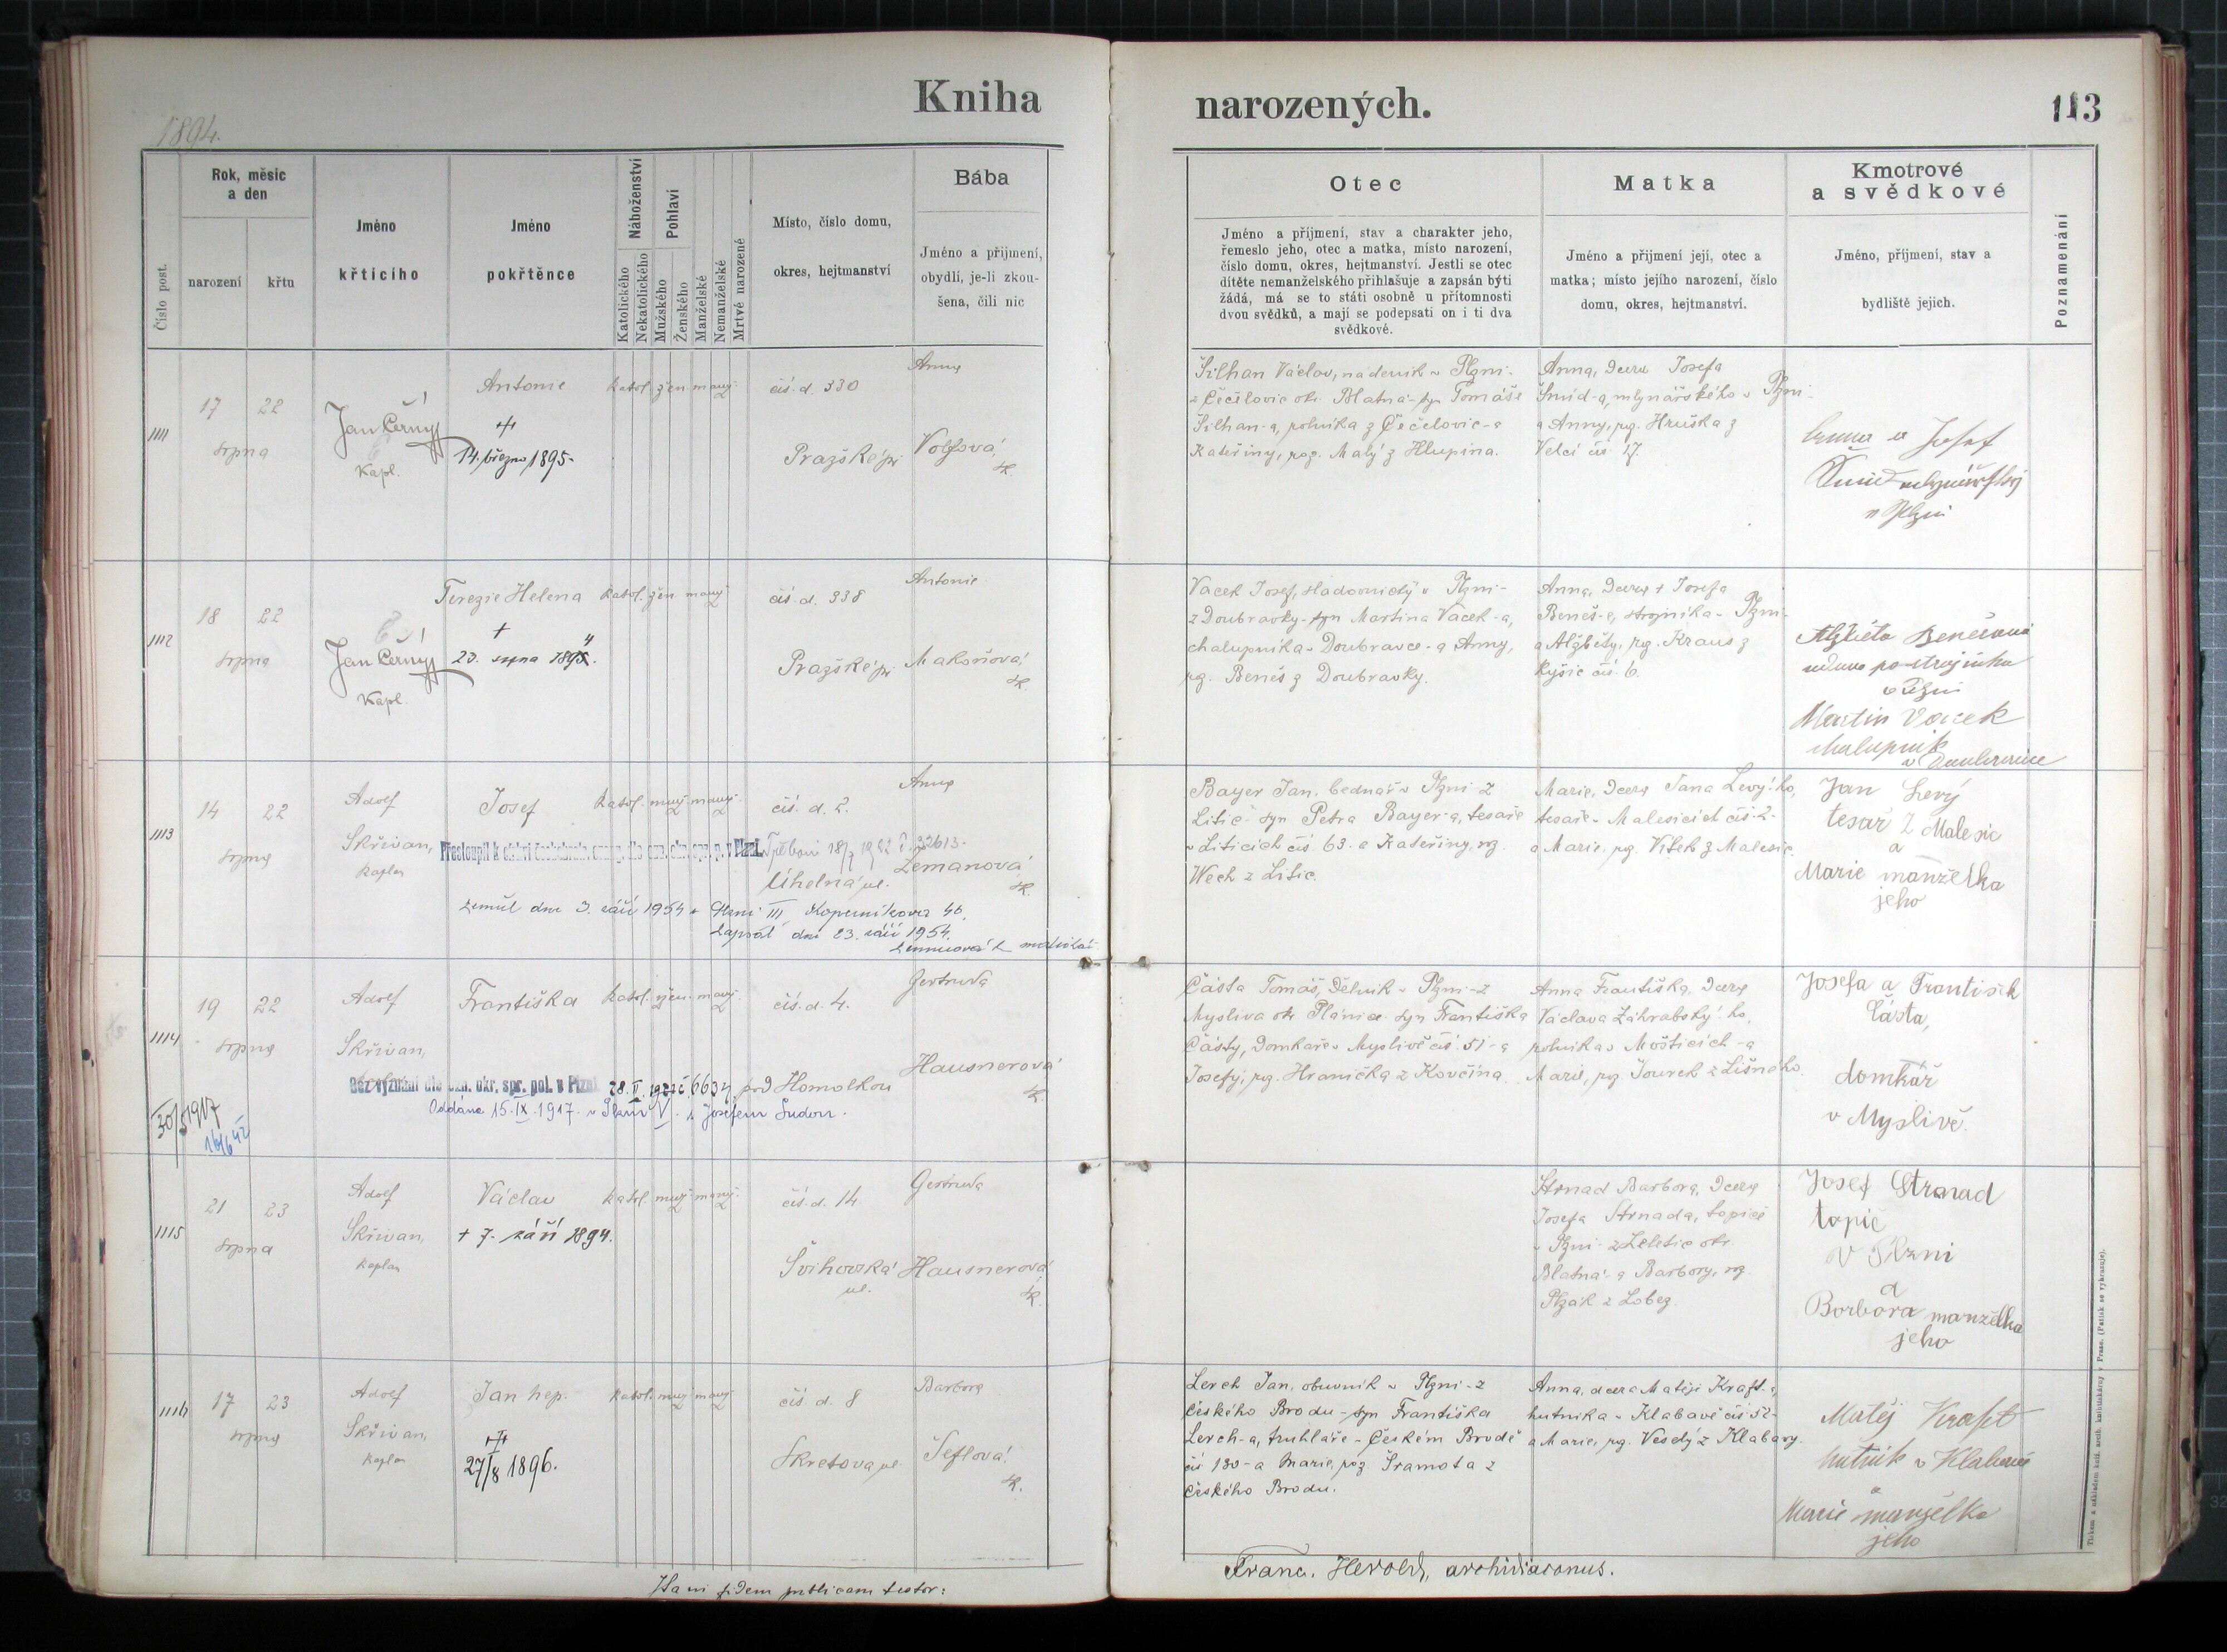 Kniha narozených.
113
1894.
Číslo post.
Rok, měsíc
a den
narození
křtu
Jméno
křtícího
Jméno
pokřtěnce
Náboženství
Katolického
Nekatolického
Pohlaví
Mužského
Ženského
Manželské
Nemanželské
Mrtvě narozené
Místo, číslo domu,
okres, hejtmanství
Bába
Jméno a přijmení,
obydlí, je-li zkou-
šena, čili nic
Otec
Jméno a příjmení, stav a charakter jeho,
řemeslo jeho, otec a matka, místo narození,
číslo domu, okres, hejtmanství. Jestli se otec
dítěte nemanželského přihlašuje a zapsán býti
žádá, má se to státi osobně u přítomnosti
dvou svědků, a mají se podepsati on i ti dva
svědkové.
Matka
Jméno a přijmení její, otec a
matka; místo jejího narození, číslo
domu, okres, hejtmanství.
Kmotrové
a svědkové
Jméno, příjmení, stav a
bydliště jejich.
Poznamenání
1111
17 22
srpna
Jan Černý
Kapl.
Antonie
14. března 1895
katol. žen. manž.
čís. d. 330
Pražské př
Anna
Volfová,
zk.
Šilhan Václav, nádeník v Plzni -
z Čečelovic okr. Blatná - syn Tomáše
Šilhan-a, rolníka z Čečelovic - a
Kateřiny, roz. Malý z Hlupína.
Anna, dcera Josefa
Šmíd-a, mlynářského v Plzni -
a Anny, roz. Hruška z
Velcí čís. 17.
Anna a Josef
Šmíd mlynářský
v Plzni
1112
18 22
srpna
Jan Černý
Kapl.
Terezie Helena
+
23. srpna 1894.
katol. žen. manž.
čís. d. 338
Pražské př.
Antonie
Makoňová,
zk.
Vacek Josef, sládovnický v Plzni -
z Doubravky - syn Martina Vacek-a,
chalupníka v Doubravce - a Anny,
roz. Beneš z Doubravky.
Anna, dcera + Josefa
Beneš-e, strojníka v Plzni -
a Alžběty, roz. Kraus z
Kyšic čís. 6.
Alžběta Benešová
vdova po strojníku
v Plzni
Martin Vacek
chalupník
v Doubravce
1113
14 22
srpna
Adolf
Skřivan,
kaplan
Josef
katol. muž. manž.
čís. d. 2.
Úhelná ul.
Anna
Zemanová
zk.
zemřel dne 3. září 1954 v Plzni III, Koperníkova 40.
Zapsal dne 23. září 1954.
Bayer Jan, bednář v Plzni z
Litic - syn Petra Bayer-a, tesaře
v Liticích čís. 63. a Kateřiny, roz.
Wech z Litic.
Marie, dcera Jana Levý-ho,
tesaře v Malesicích čís. 2 -
a Marie, roz. Vítek z Malesic.
Jan Levý
tesař z Malesic
a
Marie manželka
jeho
1114
19 22
srpna
Adolf
Skřivan,
Františka
katol. žen. manž.
čís. d. 4.
pod Homolkou
Gertruda
Hausnerová
zk.
Bez vyznání dle ozn. okr. spr. pol. v Plzni
Oddána 15. IX. 1917. v Plzni V. s Josefem Sudou.
Částa Tomáš, dělník v Plzni - z
Mysliva okr. Plánice - syn Františka
Částy, domkáře v Myslivě čís. 51 - a
Josefy, roz. Hranička z Kovčína.
Anna Františka, dcera
Václava Záhrabský-ho,
rolníka v Mošticích - a
Marie, roz. Tourek z Lišného.
Josefa a František
Částa,
domkář
v Myslivě.
1115
21 23
srpna
Adolf
Skřivan,
kaplan
Václav
+ 7. září 1894.
katol. muž. manž.
čís. d. 14.
Švihovská
ul.
Gertruda
Hausnerová
zk.
Strnad Barbora, dcera
Josefa Strnada, topiče
v Plzni - z Leletic okr.
Blatná - a Barbory, roz.
Plzák z Lobez.
Josef Strnad
topič
v Plzni
a
Borbora manželka
jeho
1116
17 23
srpna
Adolf
Skřivan,
kaplan
Jan Nep.
27/8 1896.
katol. muž. manž.
čís. d. 8
Skretova ul.
Barbora
Šeflová,
zk.
Lerch Jan, obuvník v Plzni - z
Českého Brodu - syn Františka
Lerch-a, truhláře v Českém Brodě
čís 130 - a Marie, roz. Šramota z
Českého Brodu.
Anna, dcera Matěje Kraft-a,
hutníka v Klabavě čís 52 -
a Marie, roz. Veselý z Klabavy.
Matěj Kraft
hutník v Klabavě
a
Marie manželka
jeho
In fidem publicam testor:
Franc. Herold, archidiaconus.